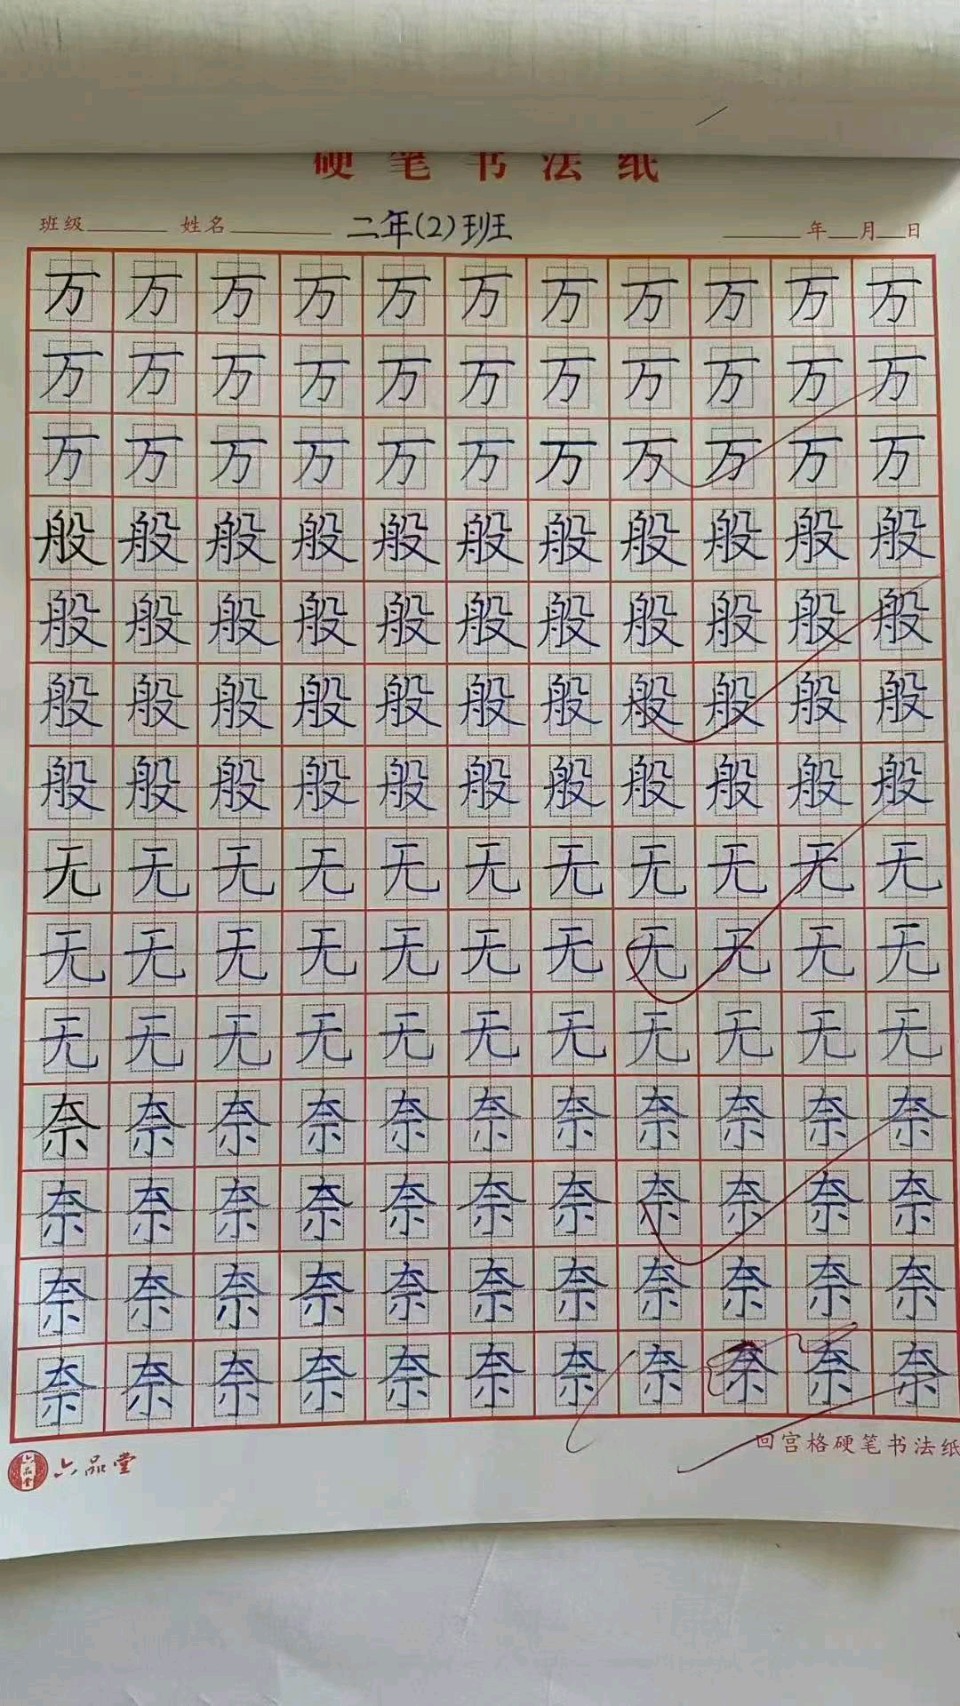 硬笔书法纸
班级 姓名 二年(2)班 年 月 日
万万万万万万万万万万万
万万万万万万万万万万万
万万万万万万万万万万万
般般般般般般般般般般般
般般般般般般般般般般般
般般般般般般般般般般般
般般般般般般般般般般般
无无无无无无无无无无无
无无无无无无无无无无无
无无无无无无无无无无无
奈奈奈奈奈奈奈奈奈奈奈
奈奈奈奈奈奈奈奈奈奈奈
奈奈奈奈奈奈奈奈奈奈奈
奈奈奈奈奈奈奈奈奈奈奈
回宫格硬笔书法纸
六品堂 六品堂